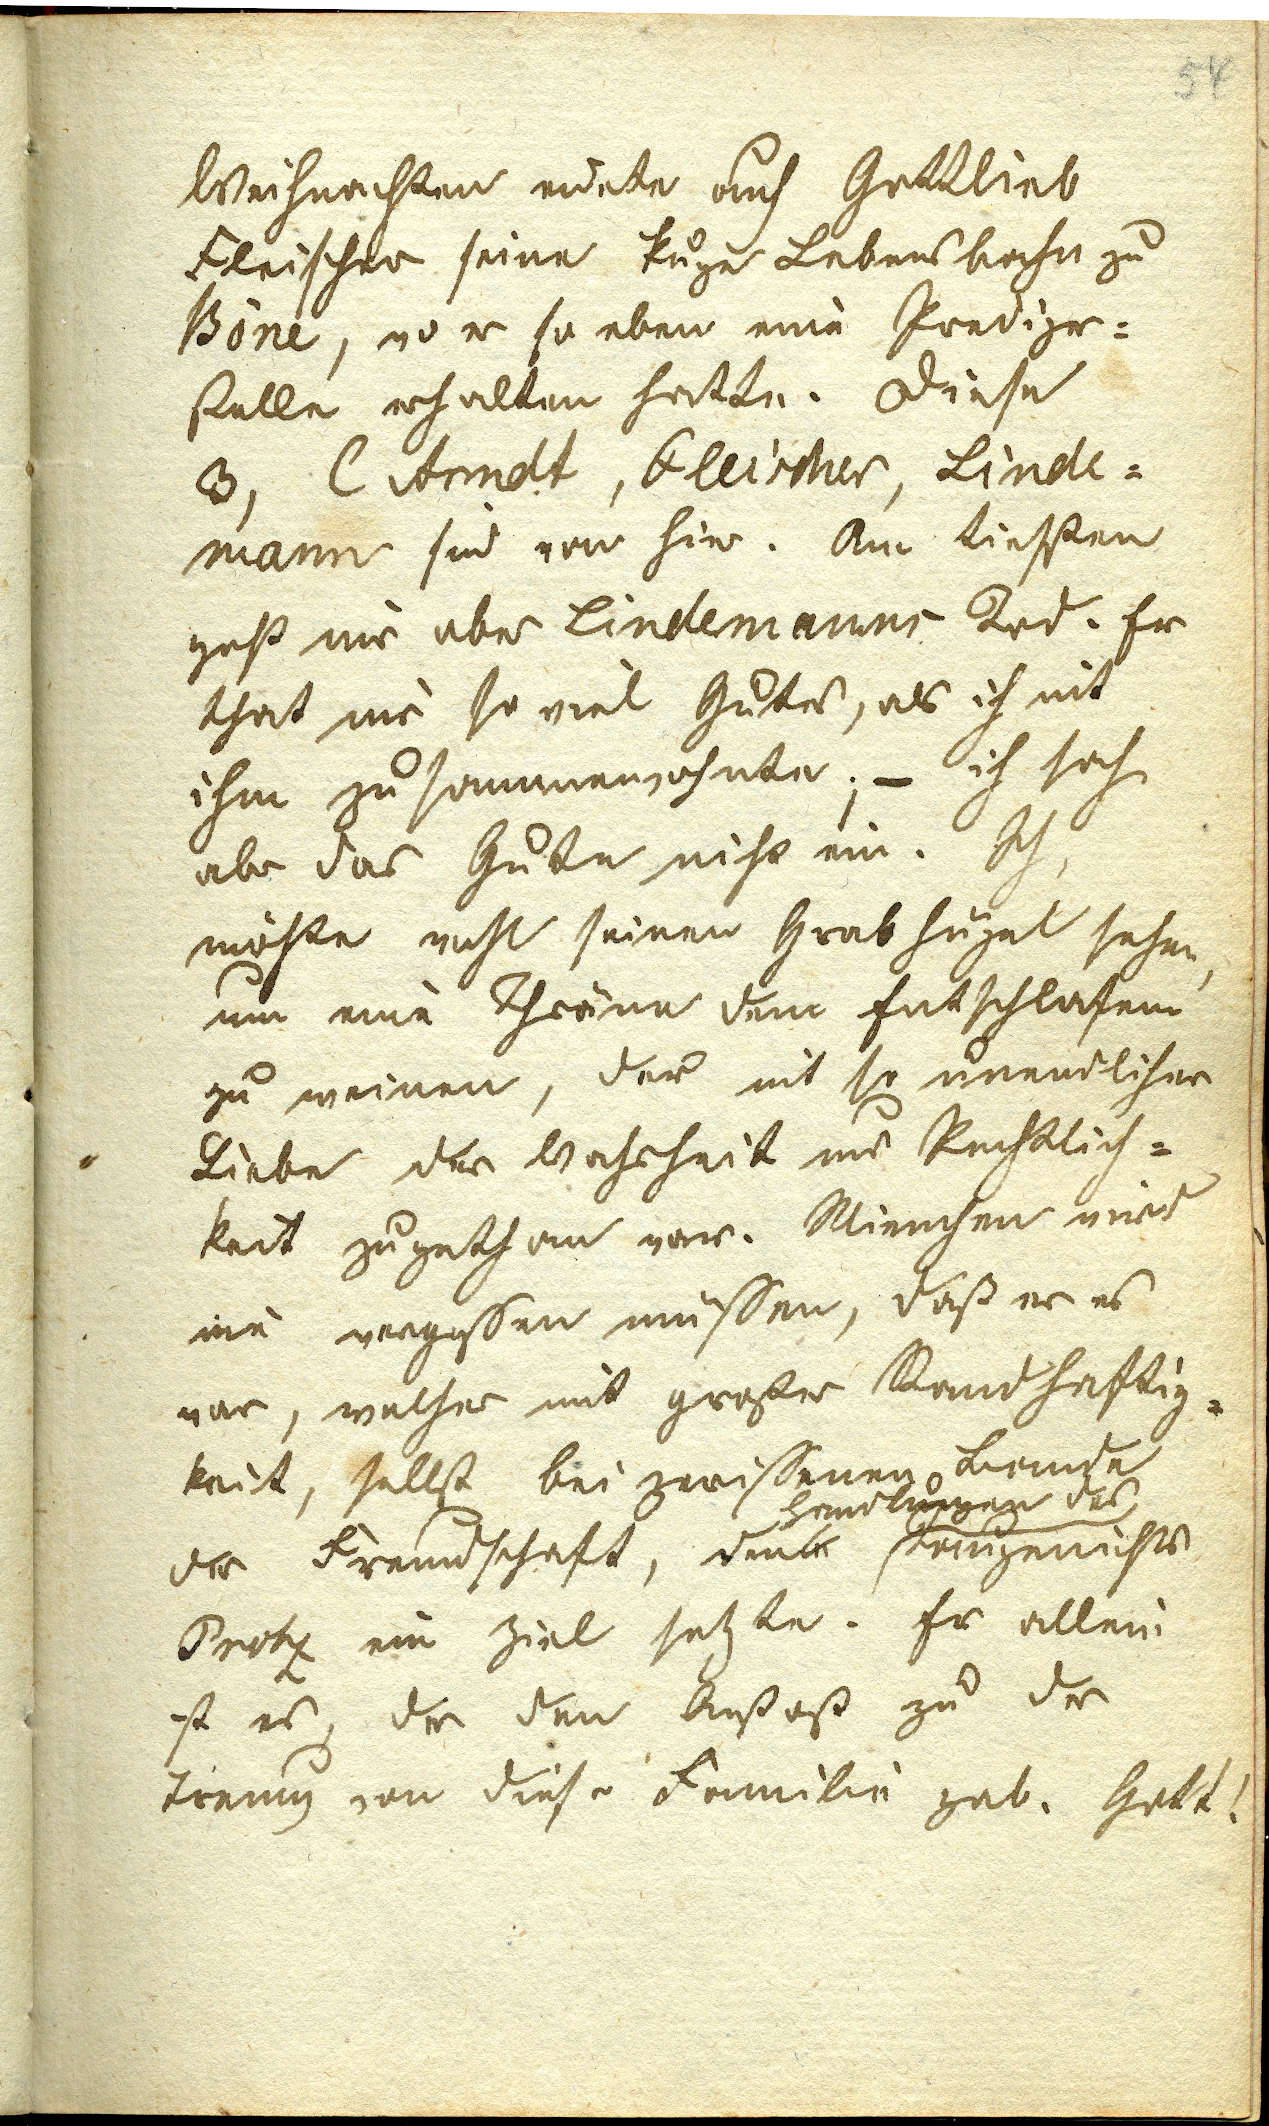 54
Weihnachten endete auch Gottlieb
Fleischer seine kurze Lebensbahn zu
Böne, wo er so eben eine Prediger-
stelle erhalten hatte. Diese
3, C Arndt, Fleischer, Linde-
mann sind von hier. Am tiefsten
geht mir aber Lindemanns Tod. Er
that mir so viel Gutes, als ich mit
ihm zusammenwohnte; – ich sah
aber das Gute nicht ein. Ich
möchte wohl seinen Grabhügel sehen,
um eine Thräne dem Entschlafenen
zu weinen, der mit so unendlicher
Liebe der Wahrheit und Rechtlich-
keit zugethan war. Mienchen wird
nie vergessen müssen, daß er es
war, welcher mit großer Standhaftig-
keit, selbst bei zerissenen Bande
handlungen des
der Freundschaft, den Taugenichts
Protz ein Ziel setzte. Er allein
ist es, der den Anstoß zu der
Trennung von dieser Familie gab. Gott!